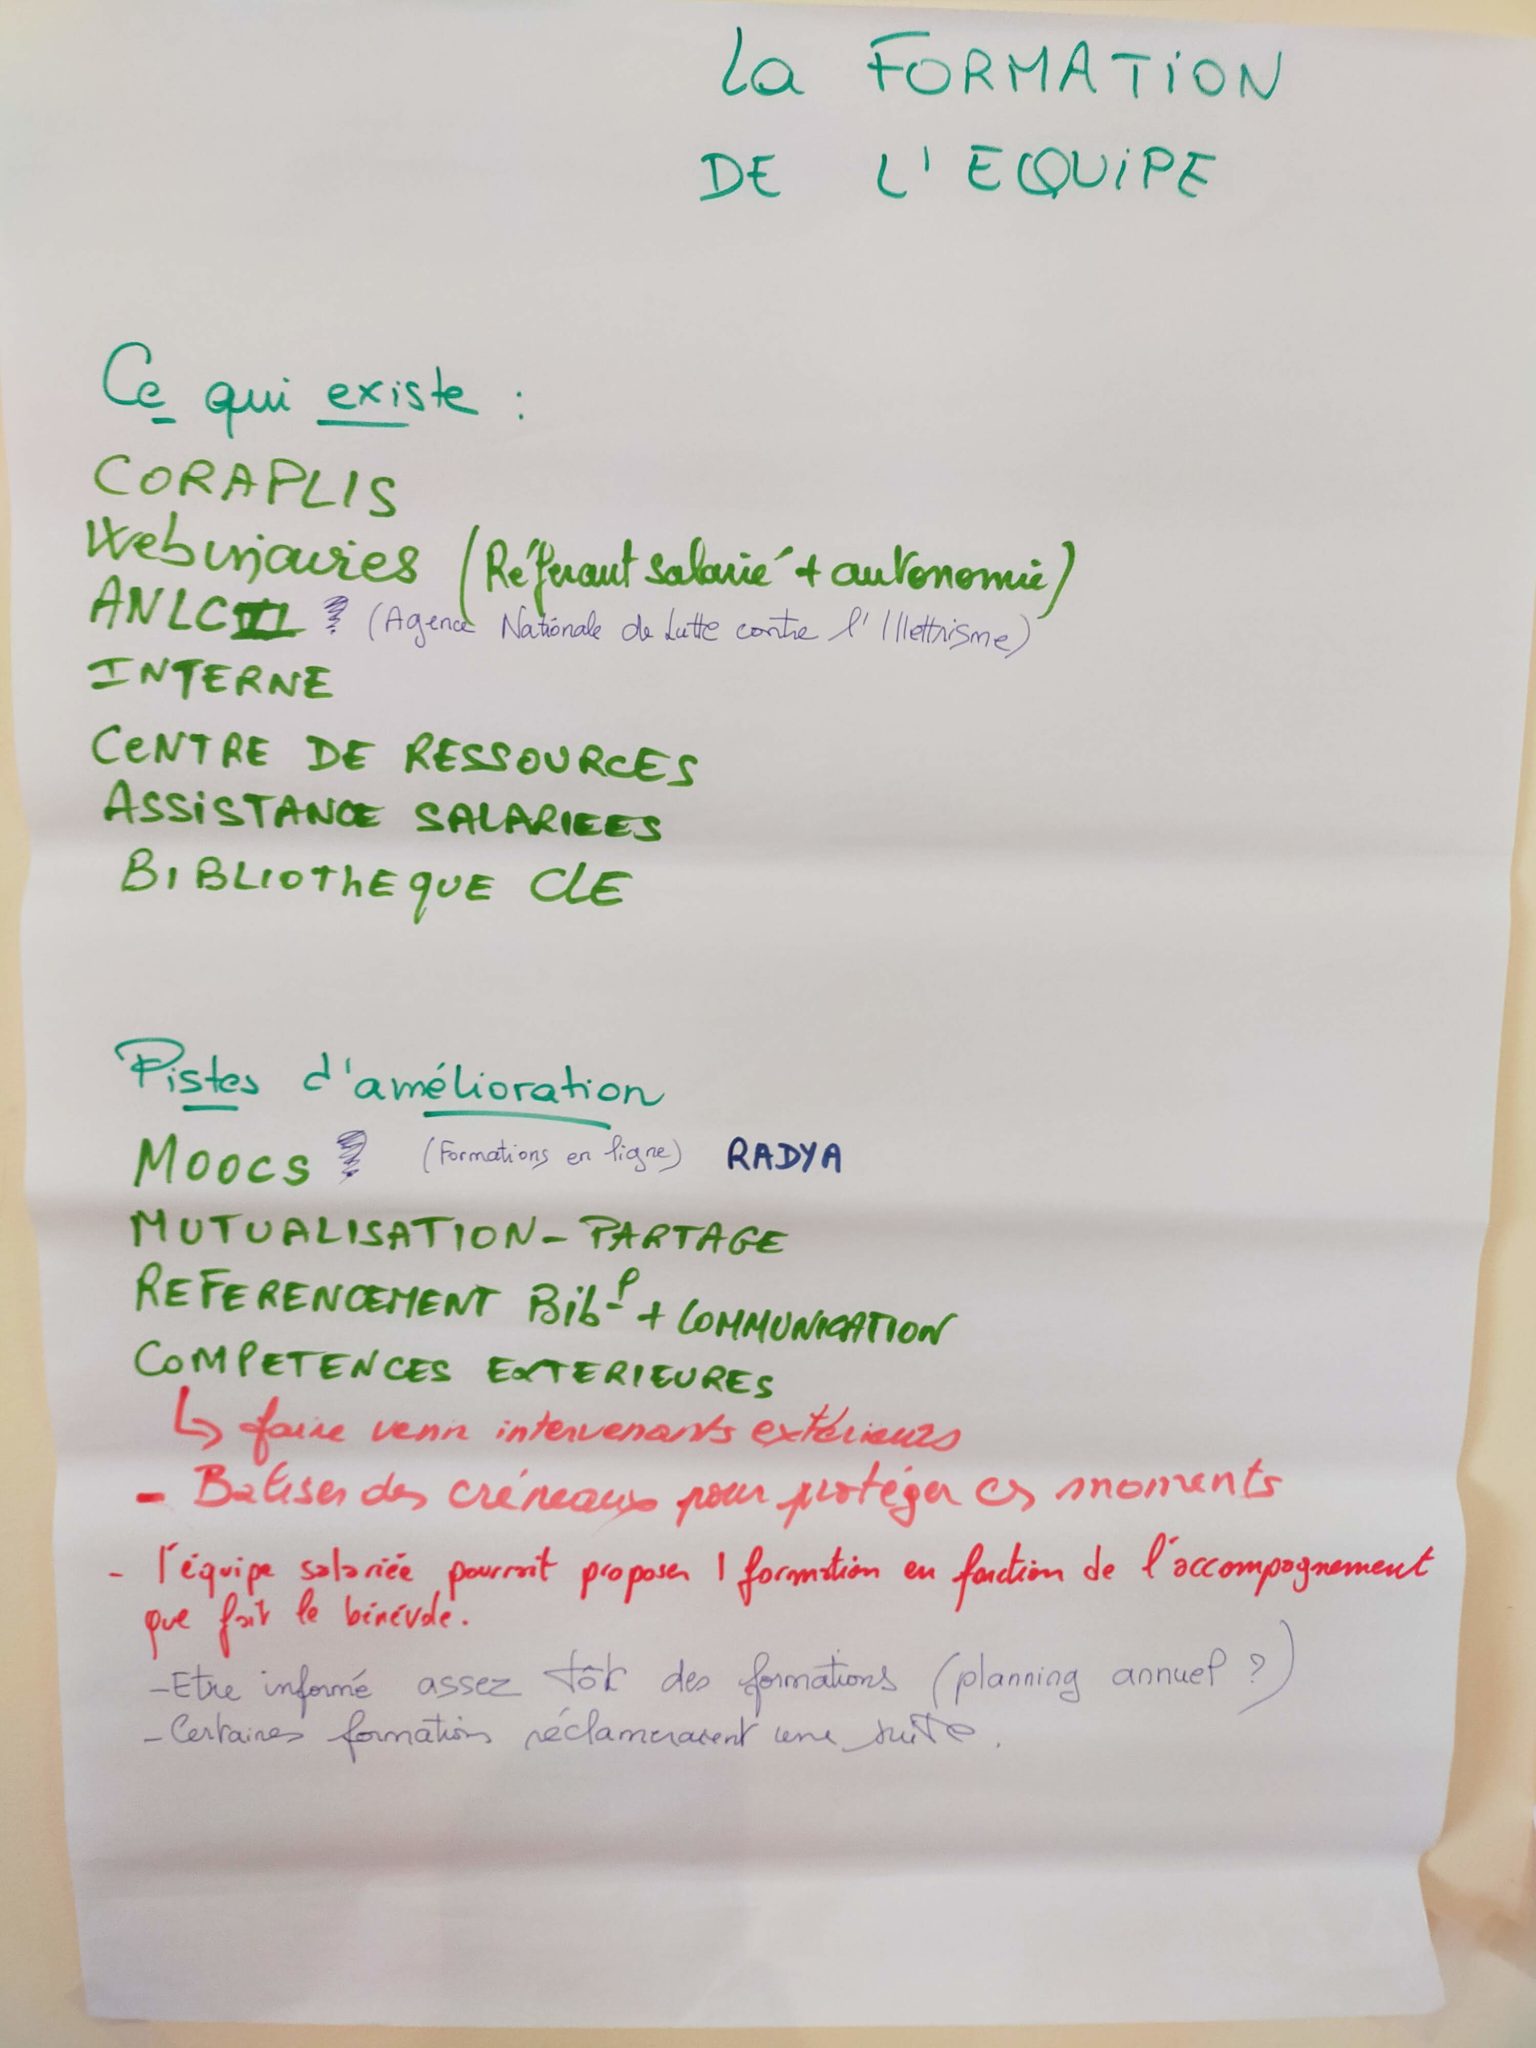 La FORMATION
DE L'EQUIPE
Ce qui existe :
CORAPLIS
Webinjaires (Référant salarié + autonomie)
ANLCI (Agence Nationale de Lutte contre l'Illettrisme)
INTERNE
CENTRE DE RESSOURCES
ASSISTANCE SALARIEES
BIBLIOTHEQUE CLE
Pistes d'amélioration
MOOCS (Formations en ligne) RADYA
MUTUALISATION - PARTAGE
REFERENCEMENT Bib + COMMUNICATION
COMPETENCES EXTERIEURES
↳ faire venir intervenants extérieurs
- Baliser des créneaux pour protéger ces moments
- l'équipe salariée pourrait proposer 1 formation en fonction de l'accompagnement
que fait le bénévole.
- Etre informé assez tôt des formations (planning annuel ?)
- Certaines formations réclameraient une suite.